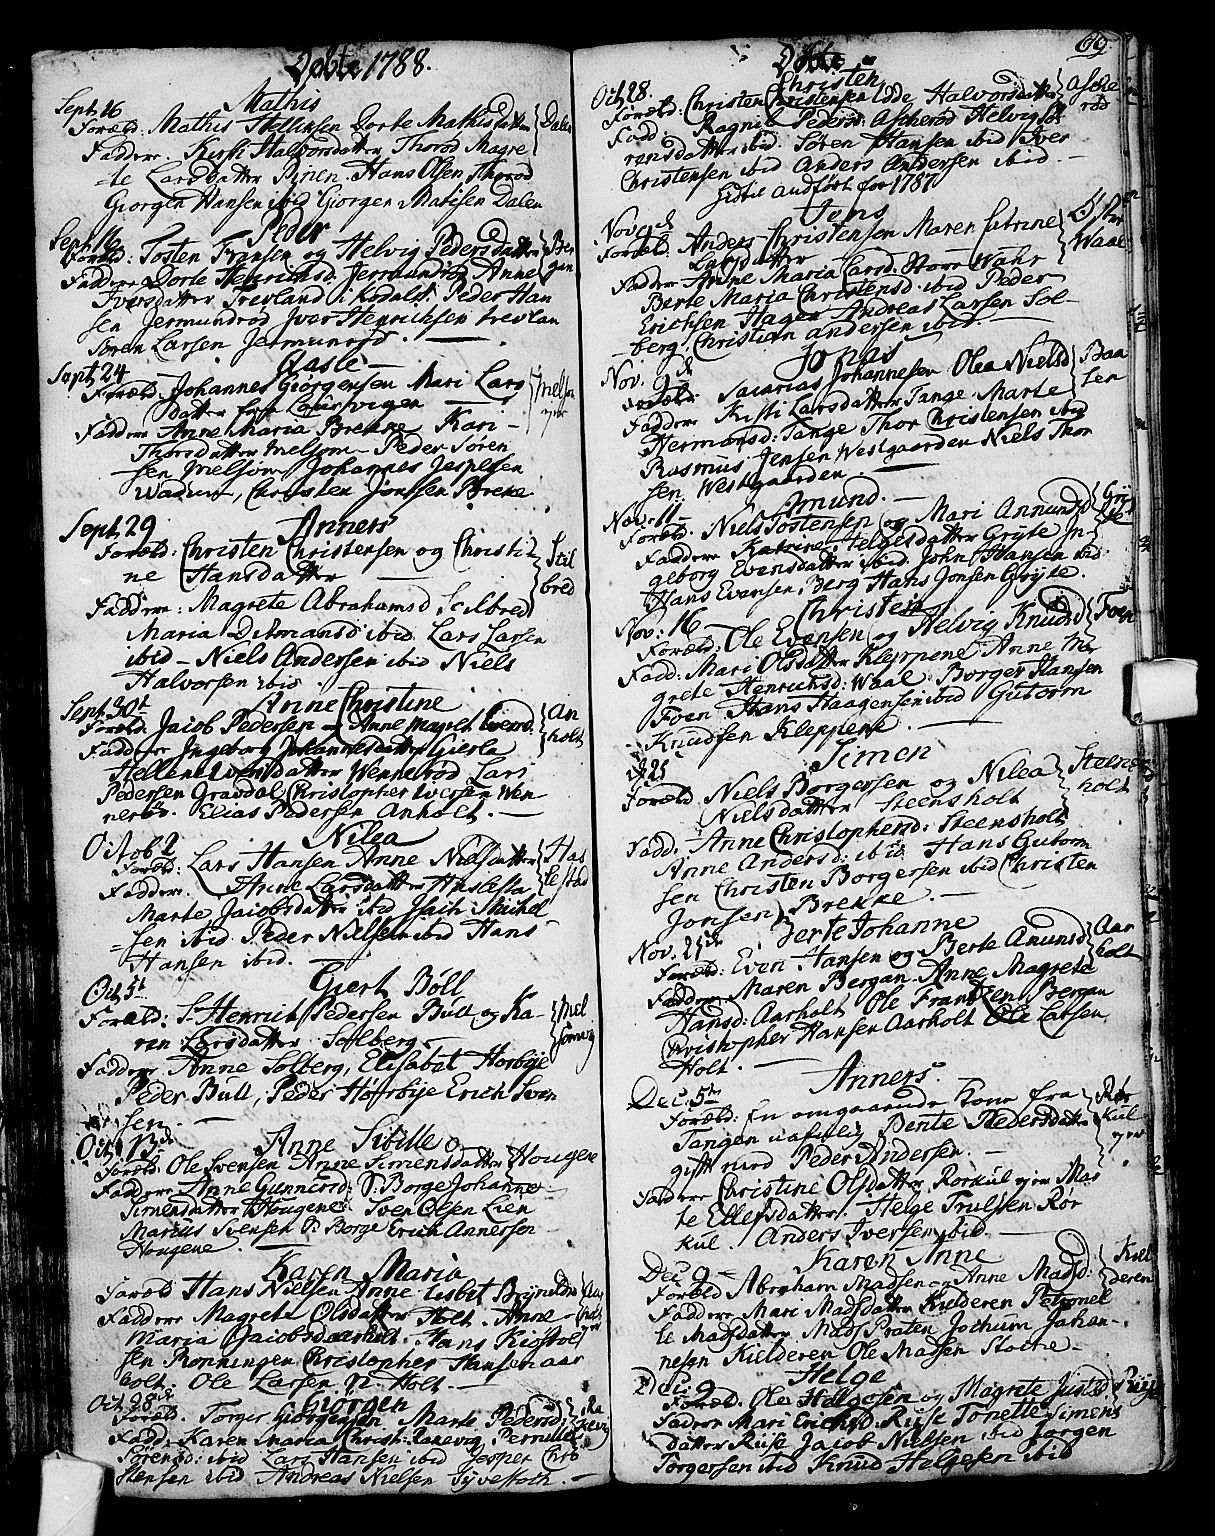 Døbte 1788.
Sept. 16 Mathis
Foræld. Mathis Hellinsen Dorte Mathisdatter Dalen
Faddere. Kirsti Halvorsdatter Thorød Magre
te Larsdatter Hans Olsen Thorød
Giorgen Hansen ibid Giorgen Matisen Dalen
Peder
Foræld: Tosten Fransen og Helvig Pedersdatter
Faddere Dorte Henrichsd. Jermundrød Anne
Iversdatter Trevland i Kodals. Peder Han
sen Jermundrød Iver Henrichsen trevlan
Søren Larsen Jermunrød.
Aasle
Sept 24
Foræld. Johannes Giørgensen Mari Lars
datter Laurvigen Melsom
Faddere Anne Maria Brekke Kari
Thorsdatter Melsom Peder Søren
sen Melsom Johannes Jespersen
Wadum, Christen Jonssen Breke
Sept. 29 Anners
Foræld: Christen Christensen og Christi
ne Hansdatter Scilbred
Faddere: Magrete Abrahamsd Scilbred
Maria Ditmansd ibid Lars Larsen
ibid - Niels Andersen ibid Niels
Halvorsen ibid.
Sept. 30t Anne Christine
Foræld. Jacob Pedersen og Anne Magret Iversd. Anholt
Faddere Ingeborg Johannesdatter Gierla
Hellene Iversdatter Wennerød Lars
Pedersen Gravdal Christopher Iversen Wen
nerød. Elias Pedersen Anholt.
Octob 2 Nilea
Foræld: Lars Hansen Anne Nielsdatter Haslestad
Faddere. Anne Larsdatter Haslesta
Marte Jacobsdatter ibid Isach Michel
sen ibid Peder Nielsen ibid Hans
Hansen ibid.
Oct 5t Giert Bøll
Foræld: S. Henrich Pedersen Bull og Ka
ren Larsdatter Solberg
Faddere Anne Solberg, Elisabet Hørbye
Peder Bull, Peder Hørbye Erich Sven
sen
Oct 13de Anne Sibille
Foræld Ole Svensen Anne Simensdatter Hougene
Faddere Anne Gunnersd: S: Borge Johanne
Simensdatter Hougene Sven Olsen Lien
Marius Svensen S: Borge Erich Annersen
Hougene.
Karen Maria
Foræld Hans Nielsen Anne Lisbet Brynildsd
Faddere Magrete Olsdatter Holt. Anne
Maria Jacobsd aarholt. Hans
sen Rønningen Christopher Hansen aar
holt. Ole Larsen Holt.
Oct. 28de Giørgen
Foræld. Torger Giørgensen Marte Pedersd:
Fadd. Karen Maria Christ: Ranevig Pernille
Sørensd: ibid Lars Hansen ibid Jesper Chri
stensen ibid Andreas Nielsen
69
Døbte
Oct 28. Christen
Foræld: Christen Christensen Halvorsdatter Ascherød
Fadd: Ragnil Pedersd: Ascherød Helvig Sø
rensdatter ibid. Søren Hansen ibid Iver
Christensen ibid Anders Andersen ibid.
Sidst andført for 1787
Nov 9de Jens
Foræld: Anders Christensen Maren Catrine
Larsdatter Waal
Faddere Anne Maria Larsd: Store Wahr
Berte Maria Christensd. ibid Peder
Erichsen Hagen Andreas Larsen Sol
berg Christian andersen ibid.
Nov. 9de Jonas
Foræld: Sacarias Johannesen Olea Nielsd
Faddere Kisti Larsdatter Tange Marte
Hermansd: Tange Thor Christensen ibid
Rasmus Jensen Westgaarden Niels Thor
sen Westgaarden.
Nov. 11 Amund.
Foræld. Niels Tostensen og Mari Annundsd Gryte
Faddere Katrine Helgesdatter Gryte In
geborg Evensdatter ibid. John Hansen ibid.
Hans Evensen Berg Hans Jonsen Gryte.
Nov: 16 Christen
Foræld: Ole Evensen og Helvig Knudsd Foen
Fadd: Mari Olsdatter Kleppene Anne Ma
grete Henrichsd: Waal. Borger Hansen
Foen Hans Haagensen ibid Gutorm
Knudsen Kleppene.
Simen
Foræld. Niels Borgersen og Nilea
Nielsdatter Steensholt Stensholt
Fadd: Anne Christophersd: Steensholt
Anne Andersd: ibid Hans Gutorm
sen Christen Borgersen ibid Christen
Jonsen Brekke.
Nov. 25de Berte Johanne
Foræld: Even Hansen og Berte Amundsd Aarholt
Faddere Maren Bergan. Anne Magrete
Hansd: Aarholt Ole Frandzen Bergan
Christopher Hansen Aarholt Ole Larsen
Holt.
Dec: 5te Anners.
Foræld: En omgaaende Kone fra
Tangen nafnlig Bente Pedersdatter
gift med Peder Andersen.
Faddere Christine Olsdatter Rørkul Mar
te Ellefsdatter. Helge Trulsen Rør
kul. Anders Iversen ibid.
Dec 9 Karen Anne
Foræld Abraham Madsen og Anne Madsd: Kielderen
Faddere Mari Madsdatter Kielderen Petronel
le Madsdatter Mads Praten Jochum Johan
nesen Kielderen Ole Madsen
Dec. 9 Helge
Foræld. Ole Helgesen og Magrete Justsd
Faddere Mari Erichsd. Riise Tonette Simens
datter Riise Jacob Nielsen ibid Jørgen
Torgersen ibid Knud Helgesen ibid